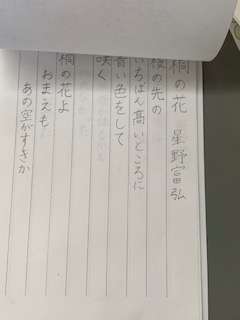 桐の花 星野富弘
枝の先の
いちばん高いところに
青い色をして
咲く
桐の花よ
おまえも
あの空がすきか